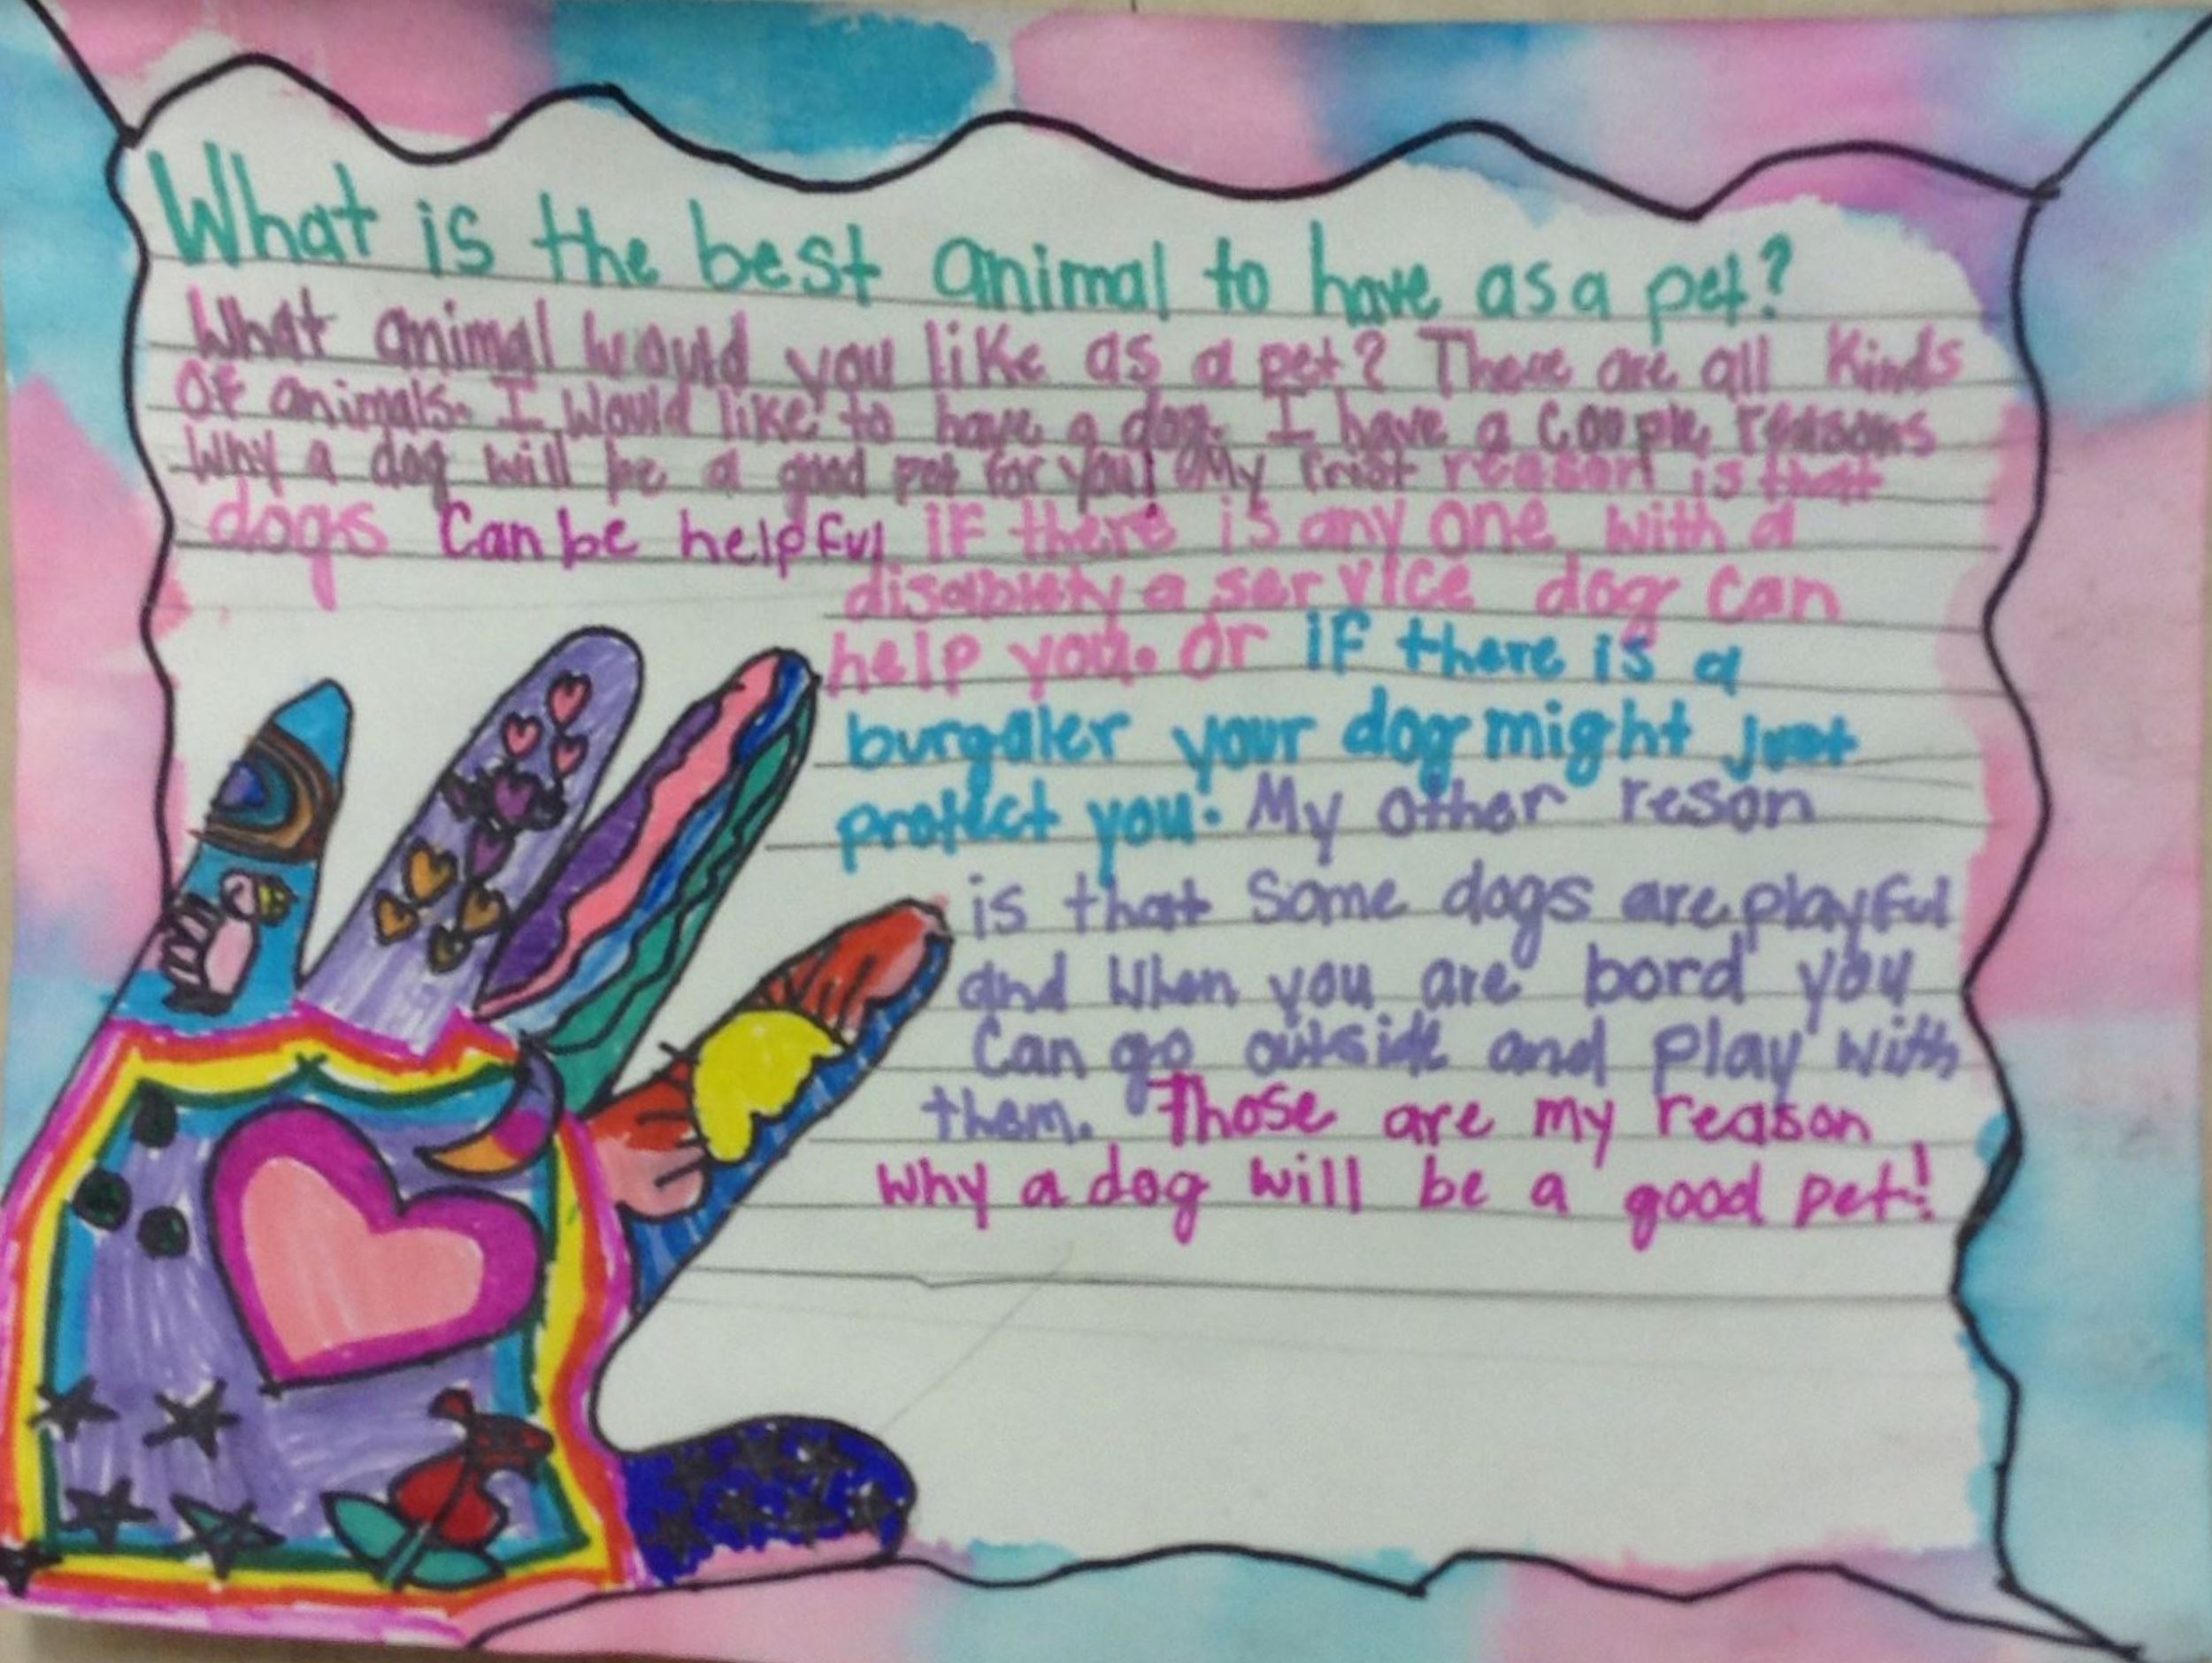 What is the best animal to have as a pet?
What animal would you like as a pet? There are all kinds
of animals. I would like to have a dog. I have a couple reasons
why a dog will be a good pet for you! My first reason is that
dogs can be helpful if there is any one with a
disabiety a service dog can
help you. Or if there is a
burgaler your dog might just
protect you. My other reson
is that some dogs are playful
and when you are bord you
can go outside and play with
them. Those are my reason
why a dog will be a good pet!